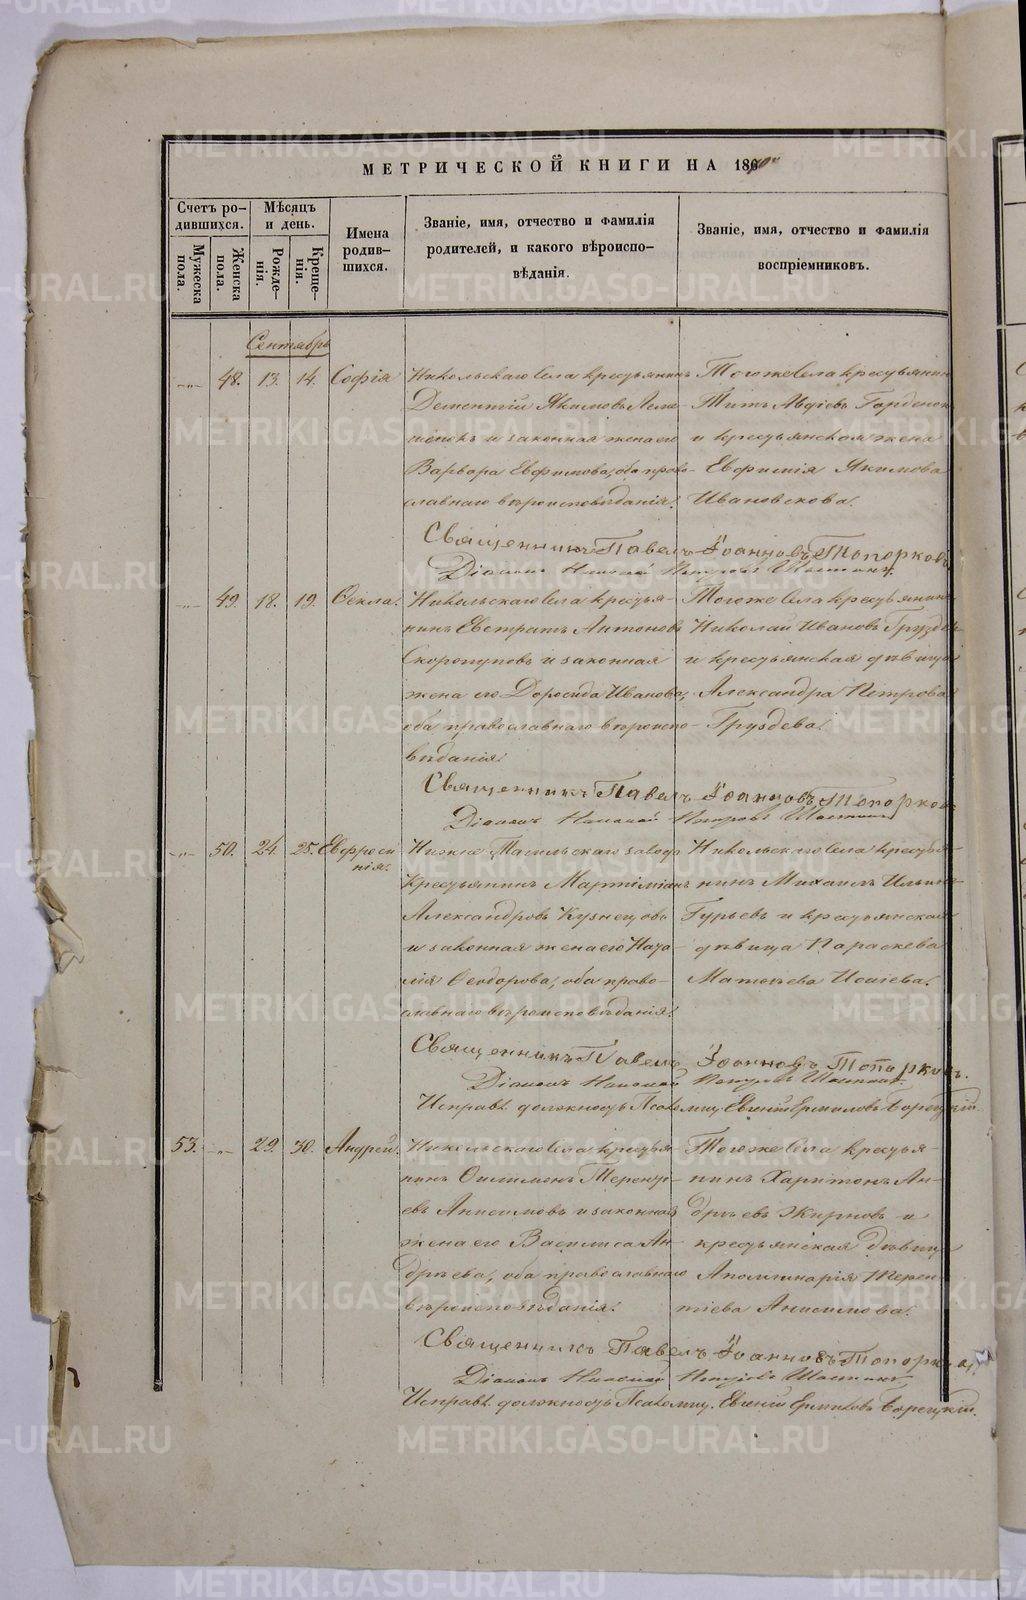 МЕТРИЧЕСКОЙ КНИГИ НА 1870й
Счетъ ро-
дившихся.
Мужеска пола.
Женска пола.
Мѣсяцъ
и день.
Рожде-
нія.
Креще-
нія.
Имена
родив-
шихся.
Званіе, имя, отчество и фамилія
родителей, и какого вѣроиспо-
вѣданія.
Званіе, имя, отчество и фамилія
воспріемниковъ.
Сентябрь
48. 13. 14. Софія
Никольскаго села крестьянинъ
Дементій Якимовъ
и законная жена его
Варвара Евфимова, оба право-
славнаго вѣроисповѣданія.
Того же села крестьянинъ
Титъ Авдіевъ
и крестьянская жена
Евфимія Якимова
Ивановскова.
Священникъ Павелъ Іоанновъ Топорковъ.
Діаконъ Николай Петровъ
49. 18. 19. Ѳекла.
Никольскаго села крестья-
нинъ Евстратъ Антоновъ
Скоропуповъ и законная
жена его Доросида Иванова,
оба православнаго вѣроиспо-
вѣданія.
Того же села крестьянинъ
Николай Ивановъ Груздевъ
и крестьянская дѣвица
Александра Петрова
Груздева.
Священникъ Павелъ Іоанновъ Топорковъ
Діаконъ Николай Петровъ
50. 24. 25. Евфроси-
нія.
Нижне Тагильскаго завода
крестьянинъ Мартиміанъ
Александровъ Кузнецовъ
и законная жена его Ната-
лія Ѳеодорова, оба право-
славнаго вѣроисповѣданія.
Никольскаго села крестья-
нинъ Михаилъ Ильинъ
Гурьевъ и крестьянская
дѣвица Параскева
Матѳѣева Исаіева.
Священникъ Павелъ Іоанновъ Топорковъ.
Діаконъ Николай Петровъ
Исправл. должность Псаломщ. Евгеній Ермиловъ Борецкій
53. 29. 30. Андрей.
Никольскаго села крестья-
нинъ Филимонъ Терентi-
евъ Анисимовъ и законная
жена его Василиса Ан-
дрѣева, оба православнаго
вѣроисповѣданія.
Того же села крестья-
нинъ Харитонъ Ан-
дрѣевъ Жирновъ и
крестьянская дѣвица
Аполлинарія Терен-
тіева Анисимова.
Священникъ Павелъ Іоанновъ Топорковъ
Діаконъ Николай Петровъ
Исправл. должность Псаломщ. Евгеній Ермиловъ Борецкій.